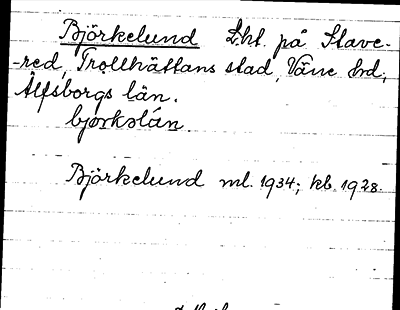 Björkelund Lht. på Slave-
-red, Trollhättans stad, Väne hrd,
Älfsborgs län.
bjørkolán
Björkelund ml. 1934; kb. 1928.